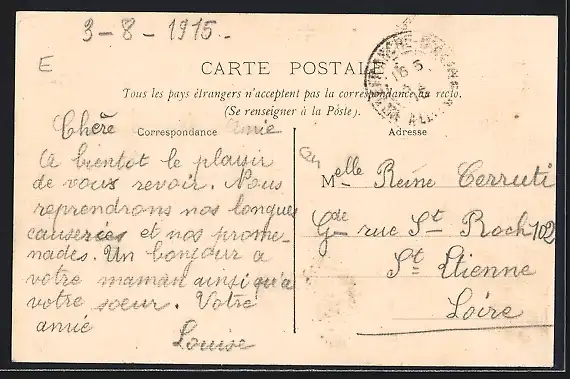 3-8-1915-
E
CARTE POSTALE
Tous les pays étrangers n'acceptent pas la correspondance au recto.
(Se renseigner à la Poste).
Correspondance
Adresse
Chère amie
A bientot le plaisir
de vous revoir. Nous
reprendrons nos longues
causeries et nos prome-
nades. Un bonjour a
votre maman ainsi qu'a
votre soeur. Votre
amie
Louise
Melle Reine Cerruti
Gde rue St Roch 102
St Etienne
Loire